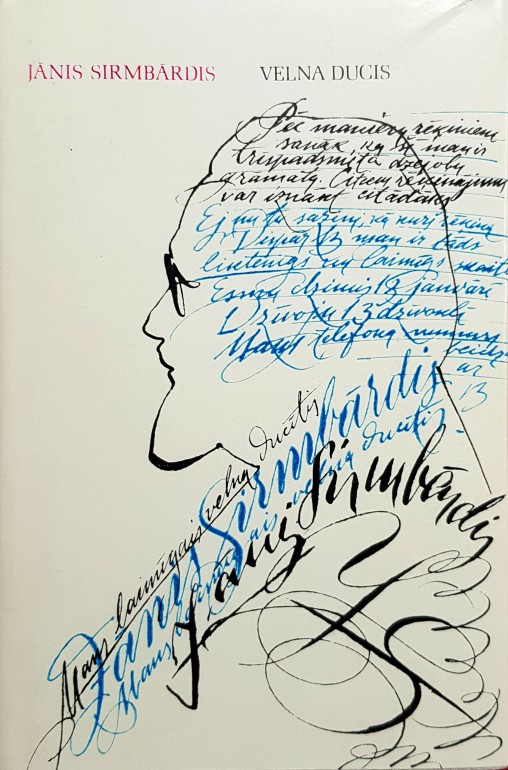 JĀNIS SIRMBĀRDIS VELNA DUCIS
Pēc maniem rēķiniem
sanāk, ka šī man ir
trīspadsmitā dzejoļu
grāmata. Citiem rēķinājumi
var iznākt citādāks
Ej nu tu sazini, kā kurš rēķina
Vispār 13 man ir tāds
liktenīgs un laimīgs skaitlis
Esmu dzimis 13 janvārī
Dzīvoju 13 dzīvoklī
Mans telefona numurs
beidzas
ar
13
Mans laimīgais velna ducītis
Jānis Sirmbārdis
Mans laimīgais velna ducītis
Jānis Sirmbārdis